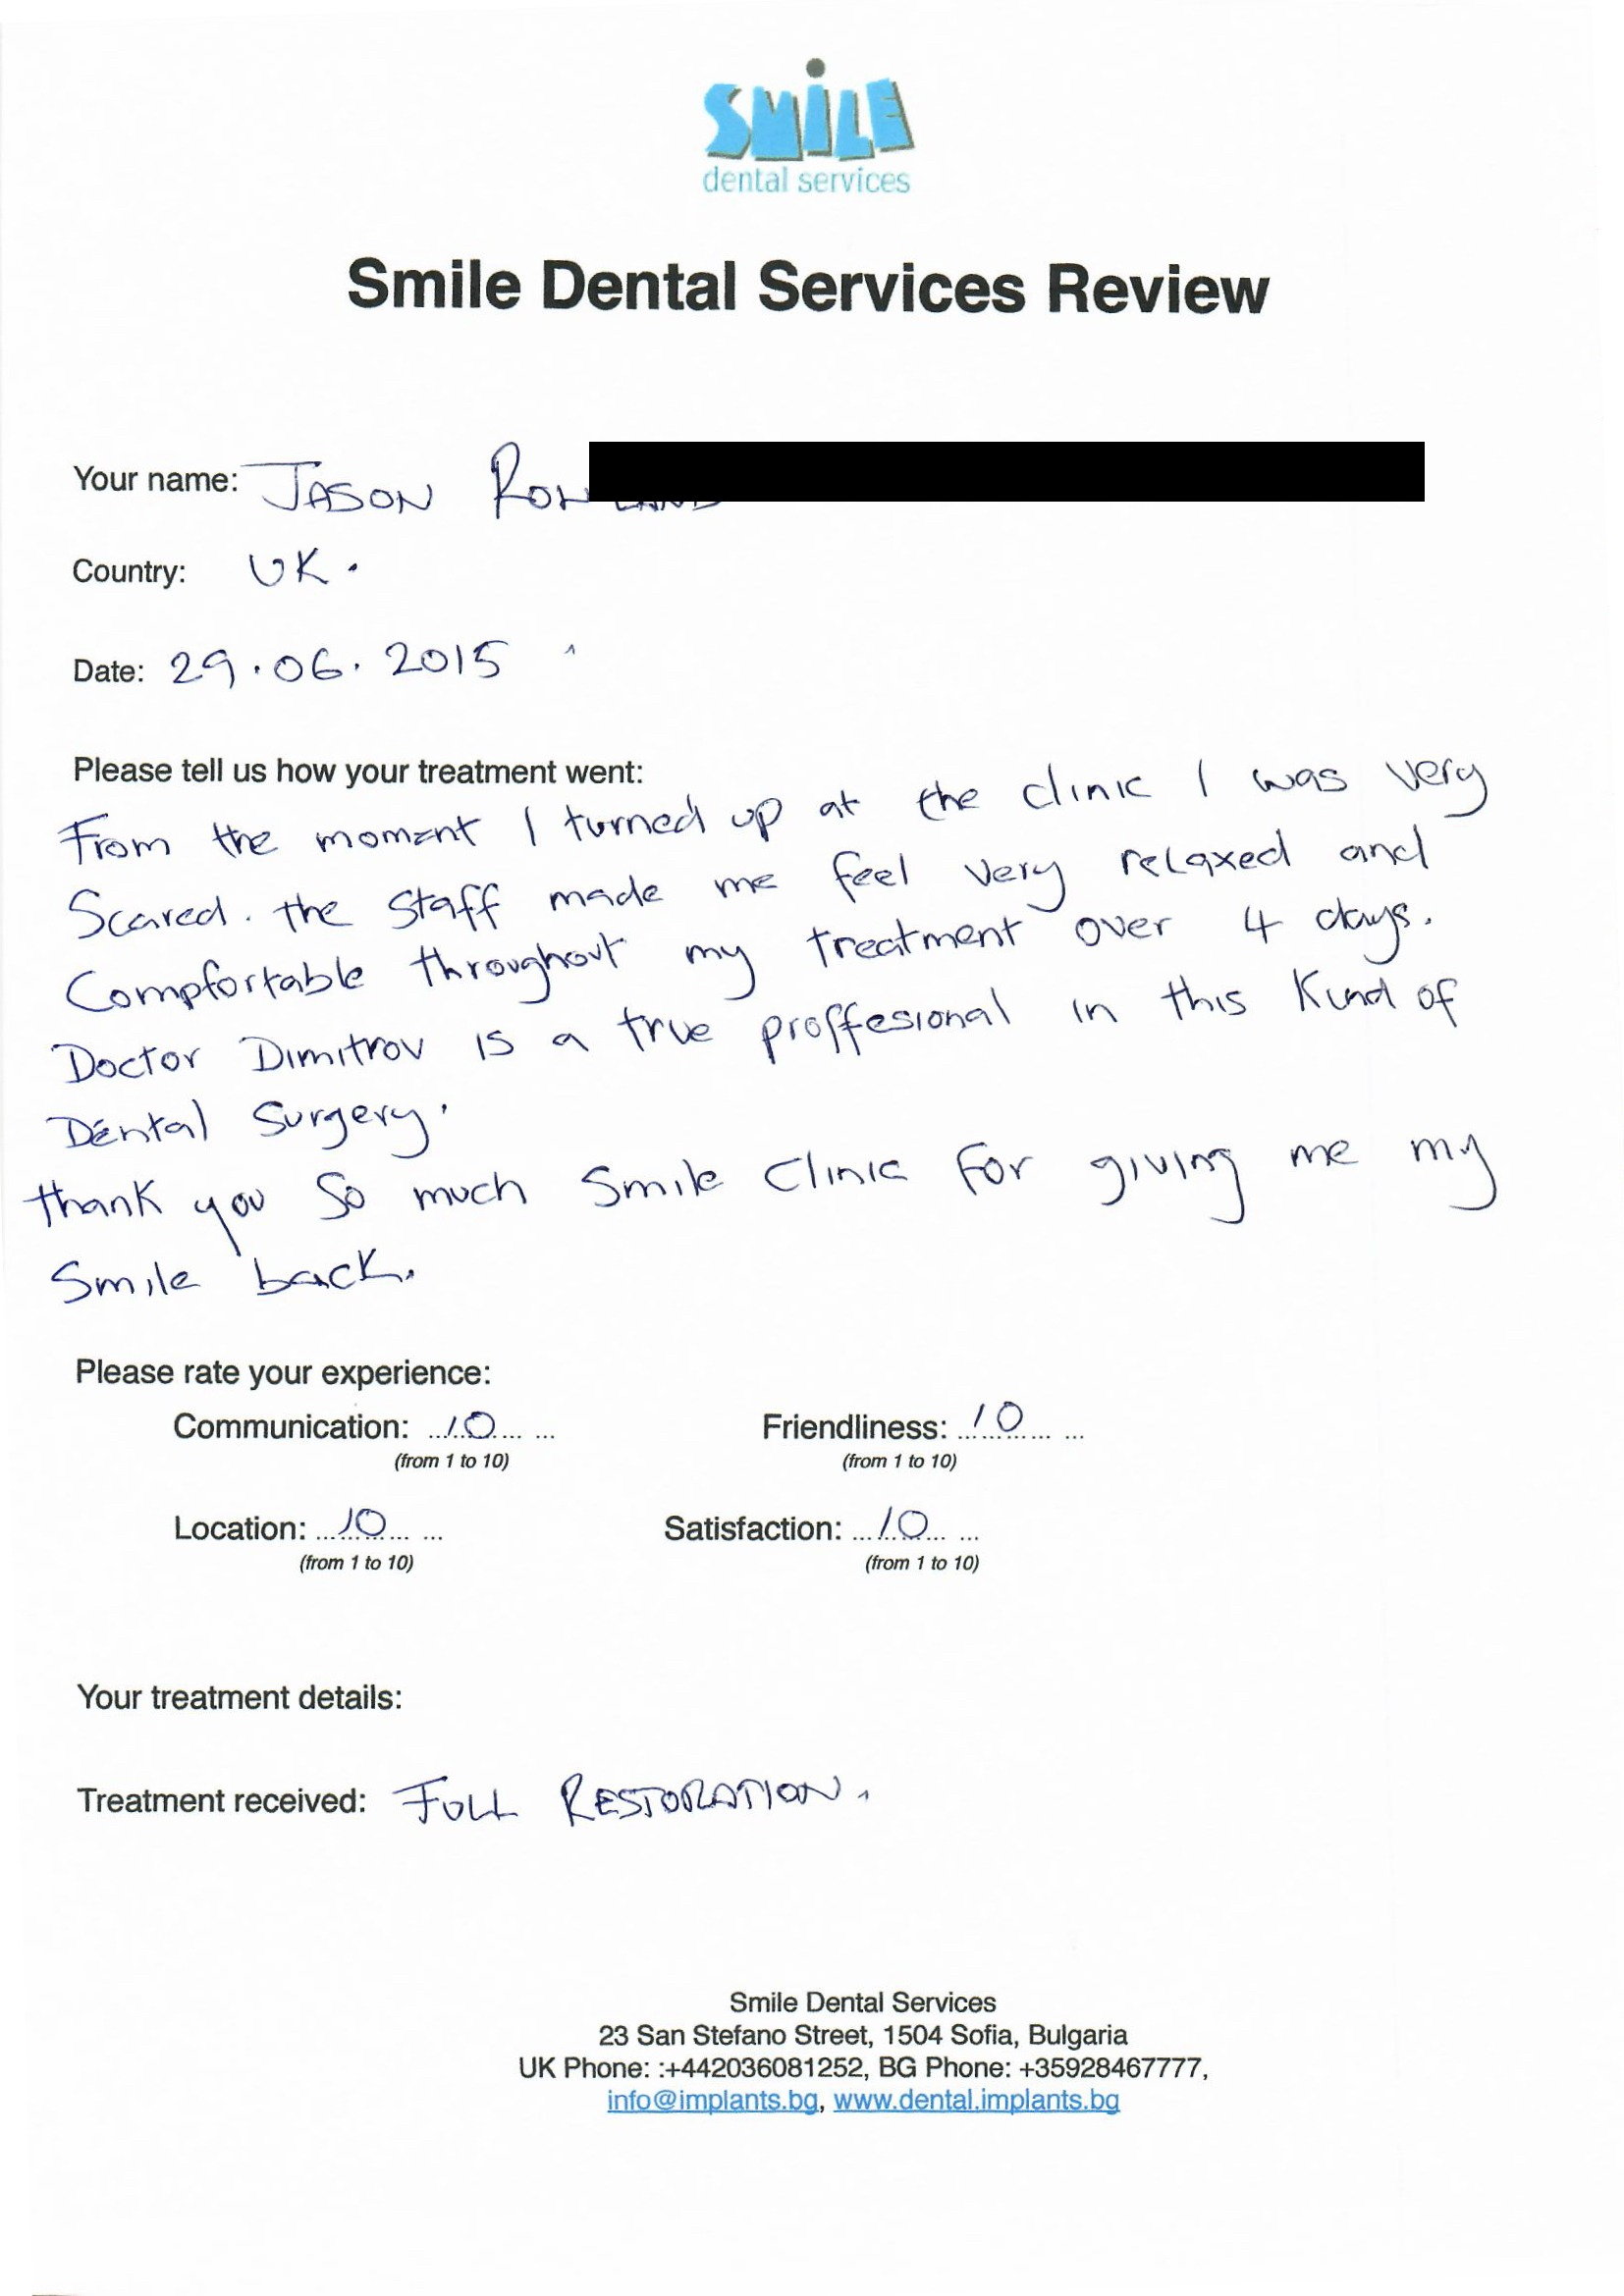 SMiLE
dental services
Smile Dental Services Review
Your name: JASON
Country: UK.
Date: 29.06.2015
Please tell us how your treatment went:
From the moment I turned up at the clinic I was very
Scared. the staff made me feel very relaxed and
Compfortable throughout my treatment over 4 days.
Doctor Dimitrov is a true proffesional in this kind of
Dental Surgery.
thank you so much Smile Clinic for giving me my
Smile back.
Please rate your experience:
Communication: ...10... ... Friendliness: ...10... ...
(from 1 to 10) (from 1 to 10)
Location: ...10... ... Satisfaction: ...10... ...
(from 1 to 10) (from 1 to 10)
Your treatment details:
Treatment received: FULL RESTORATION.
Smile Dental Services
23 San Stefano Street, 1504 Sofia, Bulgaria
UK Phone: :+442036081252, BG Phone: +35928467777,
info@implants.bg, www.dental.implants.bg